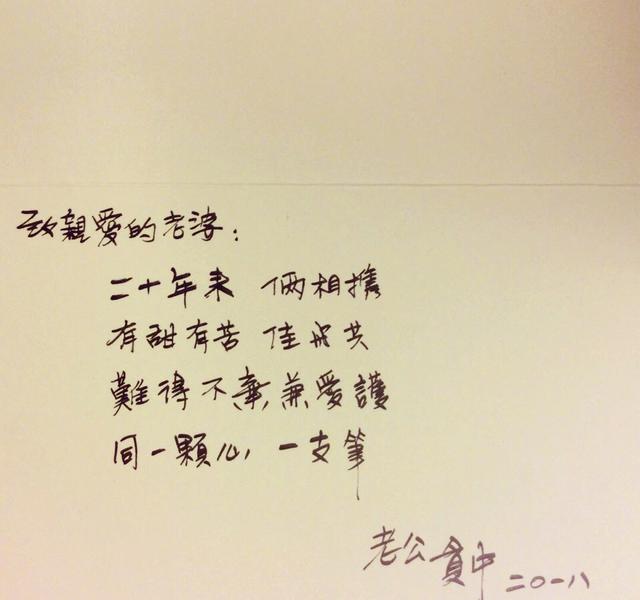 致親愛的老婆：
二十年來 倆相攜
有甜有苦 佳共
難得不棄兼愛護
同一顆心 一支筆
老公中 二〇一八